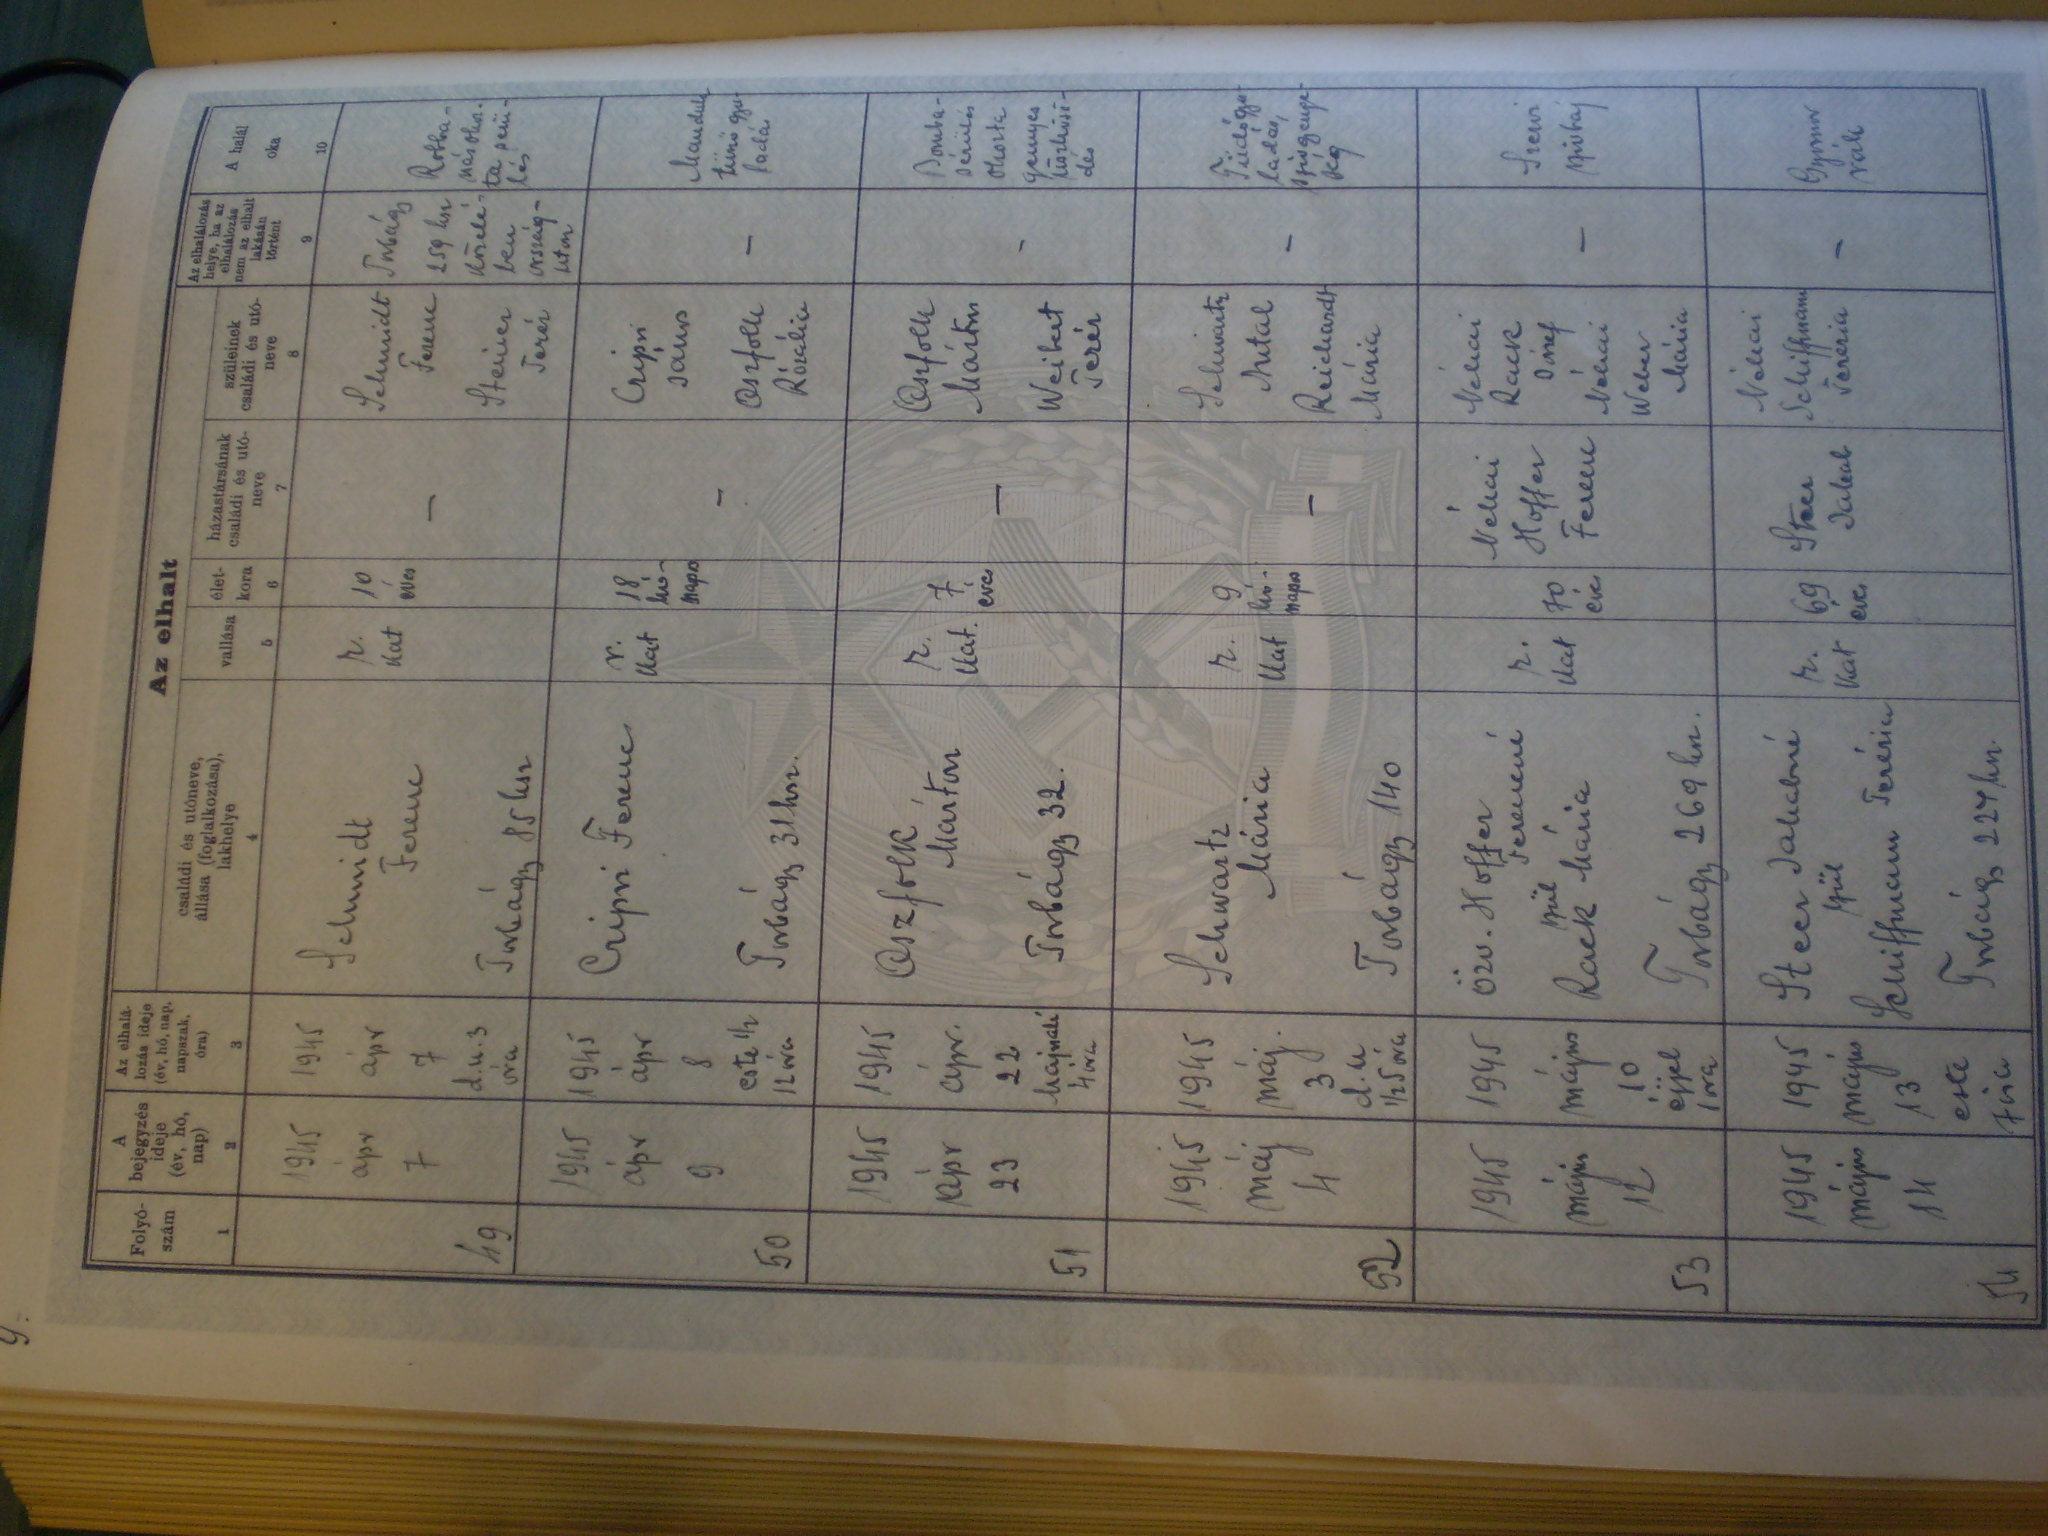 Az elhalt
Folyó-
szám
A
bejegyzés
ideje
(év, hó,
nap)
Az elhalá-
lozás ideje
(év, hó, nap,
napszak,
óra)
családi és utóneve,
állása (foglalkozása),
lakhelye
vallása
élet-
kora
házastársának
családi és utó-
neve
szüleinek
családi és utó-
neve
Az elhalálozás
helye, ha az
elhalálozás
nem az elhalt
lakásán
történt
A halál
oka
1
2
3
4
5
6
7
8
9
10
49
1945
ápr
7
1945
ápr
7
d.u. 3
óra
Schmidt
Ferenc
Torbágy 85 hsz
r.
kat
10
éves
—
Schmidt
Ferenc
Steiner
Teréz
Torbágy
259 hsz
közelé-
ben
ország-
úton
Robba-
nás okoz-
ta sérü-
lés
50
1945
ápr
9
1945
ápr
8
este 1/2
12 óra
Cripsi Ferenc
Torbágy 31 hsz.
r.
kat
18
hó-
napos
—
Cripsi
János
Oszfolk
Rozália
—
Mandula
tüsző gyu-
ladás
51
1945
ápr
23
1945
ápr.
22
hajnali
4 óra
Oszfolk
Márton
Torbágy 32.
r.
kat.
7
éves
—
Oszfolk
Márton
Weikert
Teréz
—
Bomba-
sérülés
okozta
gennyes
52
1945
máj
4
1945
máj.
3
d.u
1/2 5 óra
Schwartz
Mária
Torbágy 140
r.
kat
9
hó-
napos
—
Schwartz
Antal
Reichardt
Mária
—
Tüdőgyu-
ladás,
szívgyenge-
ség
53
1945
május
12
1945
május
10
éjjel
1 óra
Özv. Hoffer
Ferencné
szül
Rack Mária
Torbágy 269 hsz.
r.
kat
70
éves
Néhai
Hoffer
Ferenc
Néhai
Rack
József
Néhai
Weber
Mária
—
Szervi
szívbaj
54
1945
május
14
1945
május
13
este
7 óra
Steer Jakabné
szül
Schiffmann Terézia
Torbágy 227 hsz.
r.
kat
69
éves
Steer
Jakab
Néhai
Schiffmann
Terézia
—
Gyomor
rák